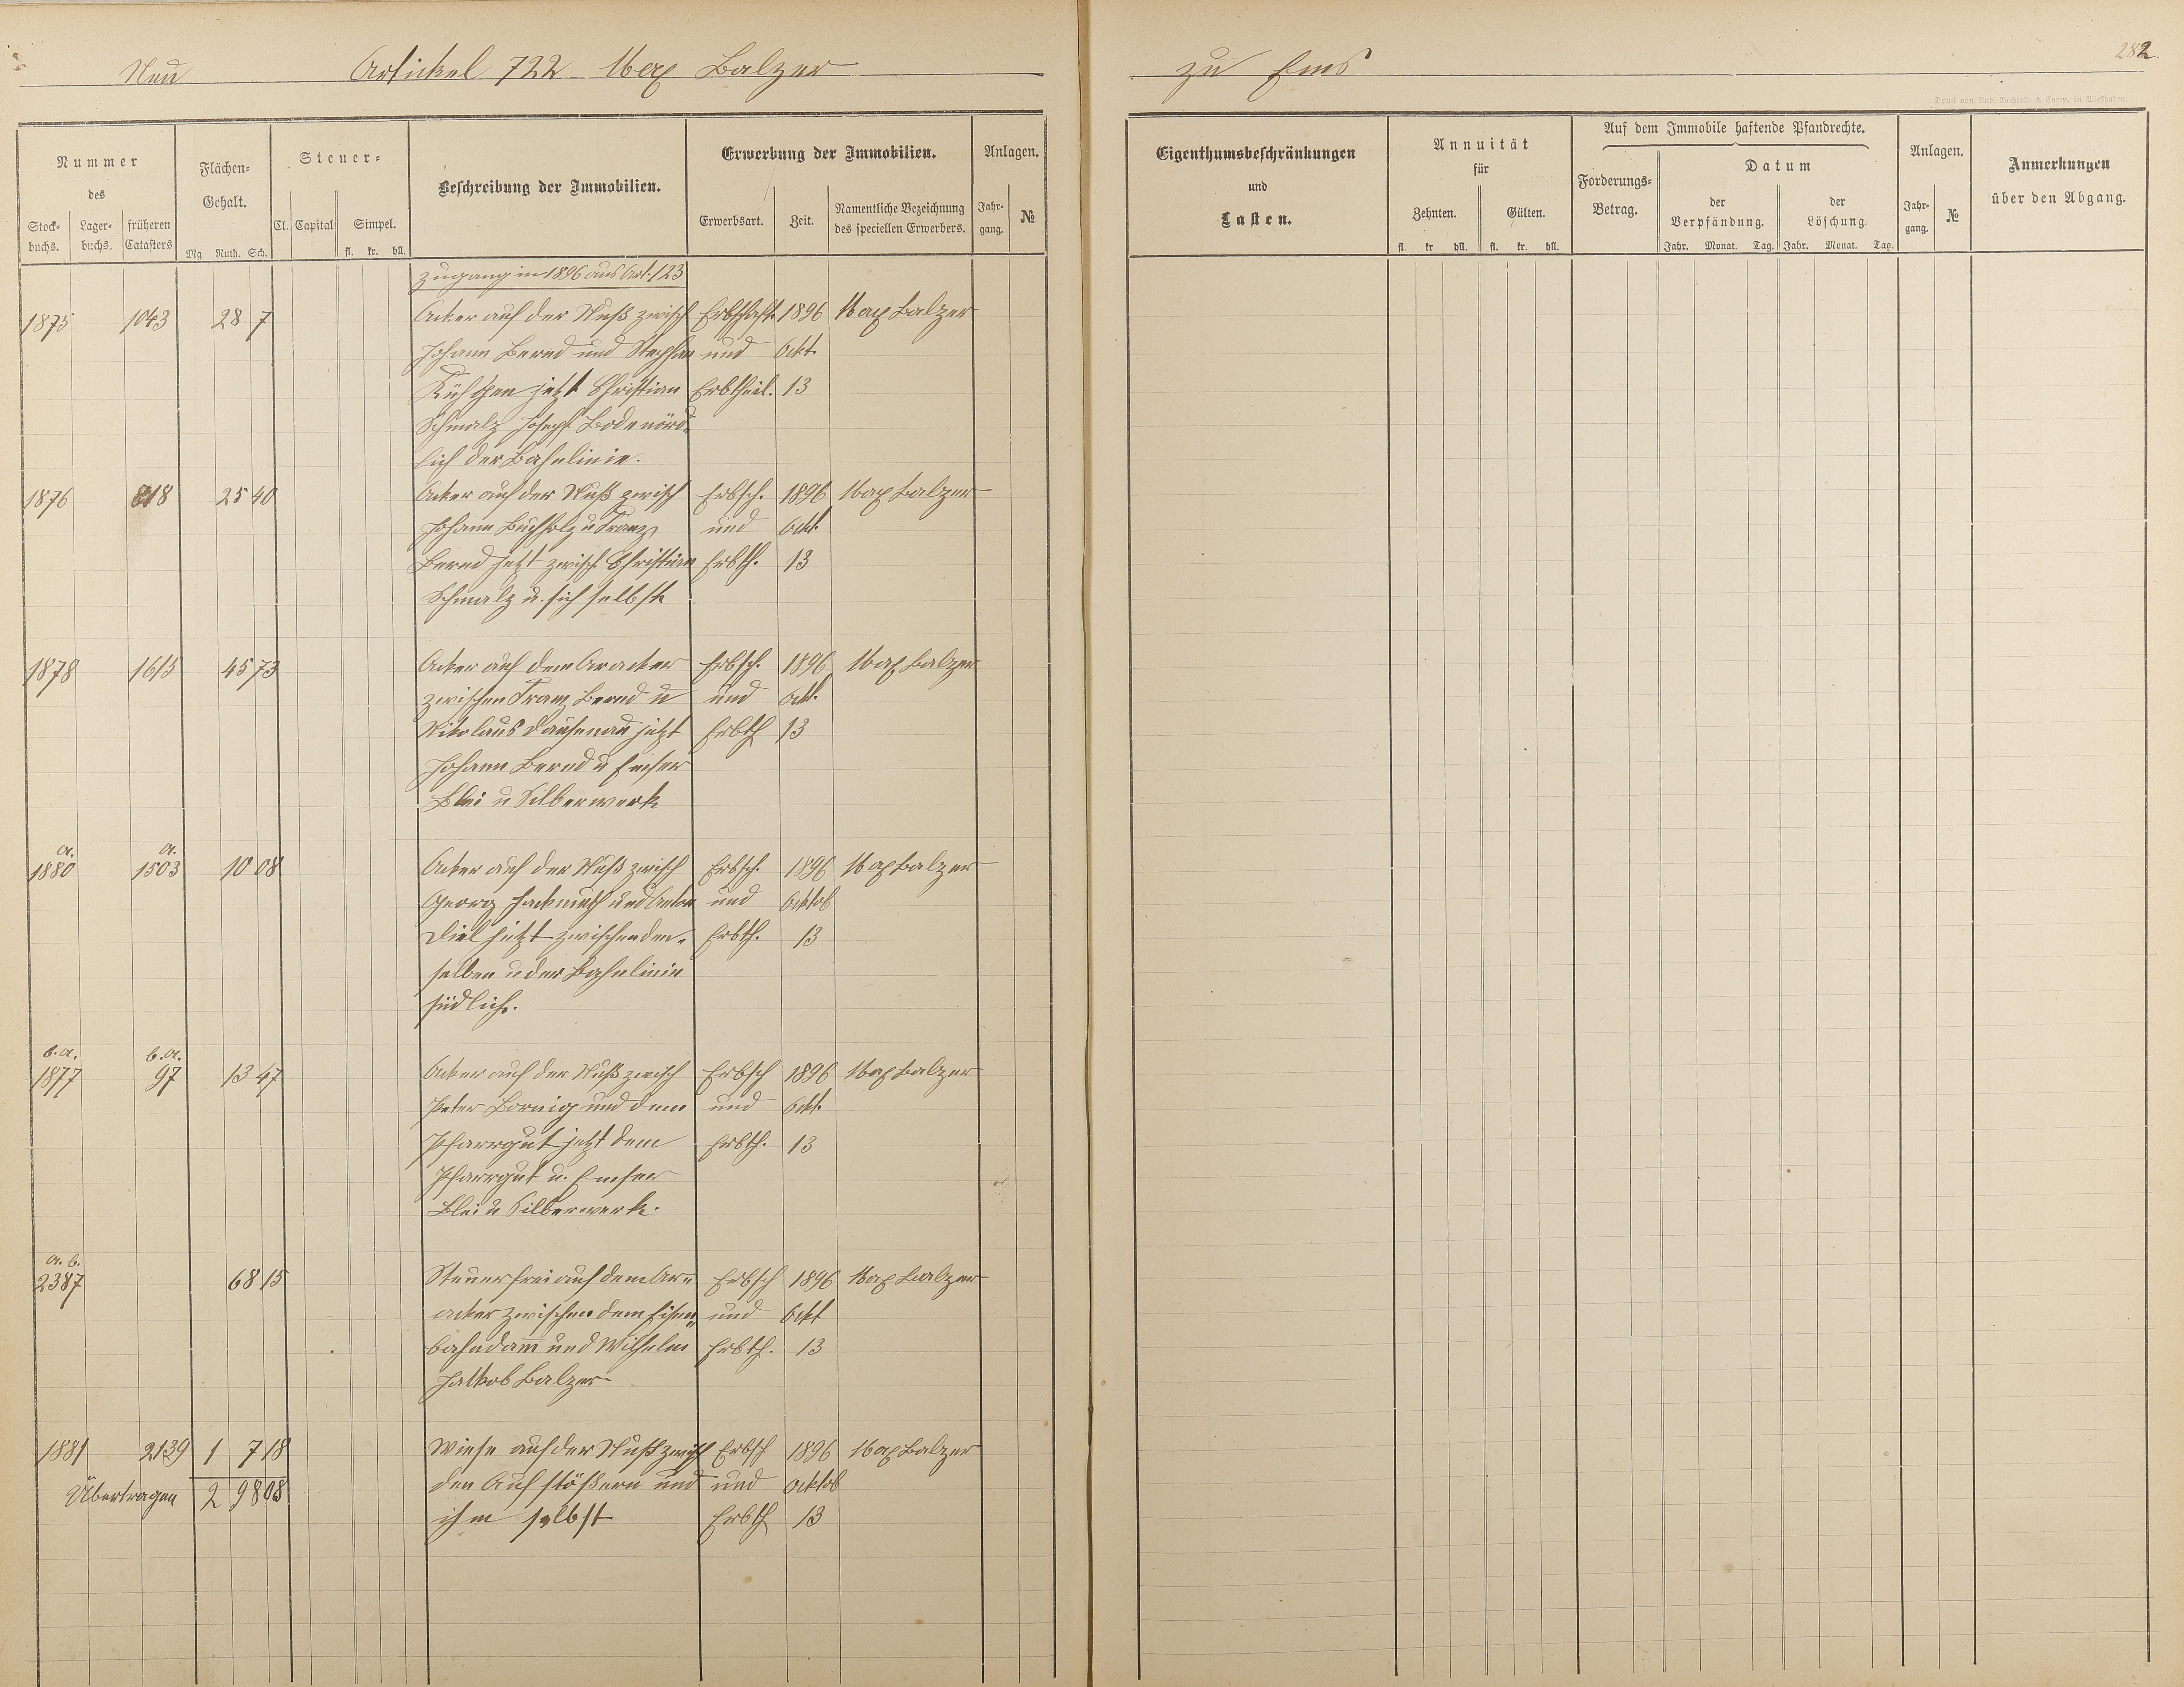 Neu Artickel 722 Max Balzer zu Ems 282.
Druck von Rud. Bechtold & Comp. in Wiesbaden.
Nummer
des
Stock-buchs. Lager-buchs. früheren Catasters
Flächen-Gehalt.
Mg. Ruth. Sch.
Steuer-
Cl. Capital Simpel.
fl. kr. hll.
Beschreibung der Immobilien.
Erwerbung der Immobilien.
Erwerbsart. Zeit. Namentliche Bezeichnung des speciellen Erwerbers.
Anlagen.
Jahr-gang. №
Eigenthumsbeschränkungen
und
Lasten.
Annuität
für
Zehnten. Gülten.
fl. kr. hll. fl. kr. hll.
Auf dem Immobile haftende Pfandrechte.
Forderungs-Betrag.
Datum
der Verpfändung. der Löschung.
Jahr. Monat. Tag. Jahr. Monat. Tag.
Anlagen.
Jahr-gang. №
Anmerkungen
über den Abgang.
Zugang in 1896 aus Art. 123
1875 1043 28 7 Acker auf der Nuß zwisch Erbschaft. 1896 Max Balzer
Johann Bernd und Stephan und Okt.
jetzt Christian Erbtheil. 13
Schmalz Joseph Bode nörd-
lich der Bahnlinie.
1876 818 25 40 Acker auf der Nuß zwisch Erbsch. 1896 Max Balzer
Johann Buchholz u Franz und Okt.
Bernd jetzt zwisch Christian Erbth. 13
Schmalz u. sich selbst
1878 1615 45 73 Acker auf dem Aracker Erbsch. 1896 Max Balzer
zwischen Franz Bernd u und Okt.
Nikolaus Dausenau jetzt Erbth 13
Johann Bernd u Emser
Blei u Silberwerk
a. a.
1880 1503 10 08 Acker auf der Nuß zwisch Erbsch. 1896 Max Balzer
Georg Hackmuth und Anton und Oktob
Diel jetzt zwischen den- Erbth. 13
selben u der Bahnlinie
südlich.
b. a. b. a.
1877 97 13 47 Acker auf der Nuß zwisch Erbsch 1896 Max Balzer
Peter Bornig und dem und Okt.
Pfarrgut jetzt dem Erbth. 13
Pfarrgut u. Emser
Blei u Silberwerk.
a. b.
2387 68 15 Steuerfrei auf dem Ar- Erbsch 1896 Max Balzer
acker zwischen dem Eisen- und Okt
bahndam̅ und Wilhelm Erbth. 13
Jakob Balzer
1881 2139 1 7 18 Wiese auf der Nuß zwisch Erbsch 1896 Max Balzer
den Aufstößern und und Oktob
ihm selbst Erbth 13
Übertragen 2 98 08